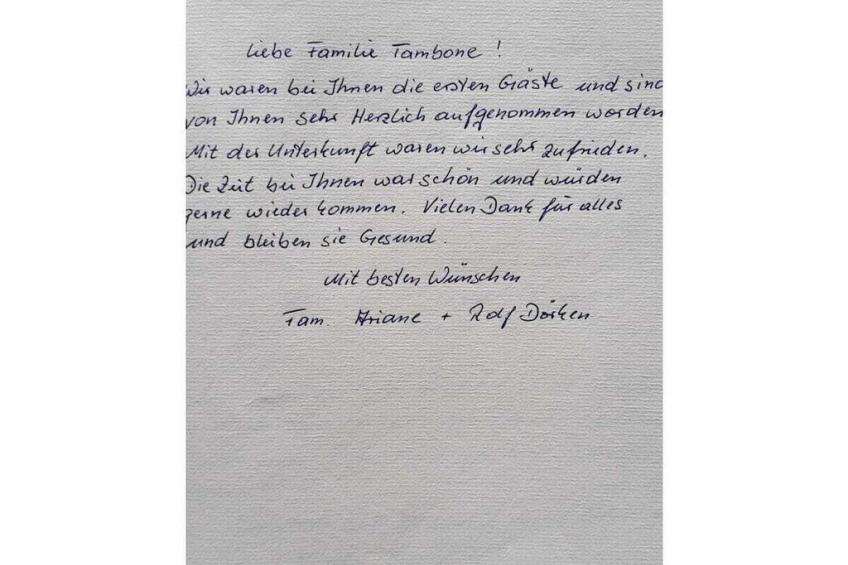 Liebe Familie Tambone !
Wir waren bei Ihnen die ersten Gäste und sind
von Ihnen sehr Herzlich aufgenommen worden
Mit der Unterkunft waren wir sehr zufrieden.
Die Zeit bei Ihnen war schön und würden
gerne wieder kommen. Vielen Dank für alles
und bleiben sie Gesund.
Mit besten Wünschen
Fam. Ariane + Rolf Dörken